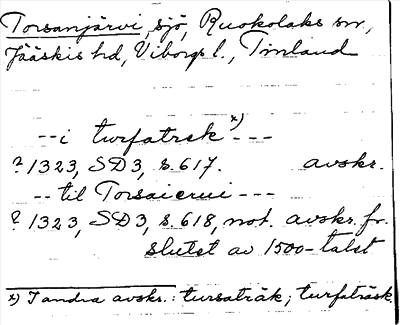 Torsanjärvi, sjö, Ruokolaks sn,
Jääskis hd, Viborgs l., Finland
-- i turfatrek x) ---
? 1323, SD3, s. 617. avskr.
-- til Torsaierui ---
? 1323, SD3, s. 618, not. avskr. fr.
slutet av 1500-talet
x) I andra avskr.: tursaträk; turfaträsk.